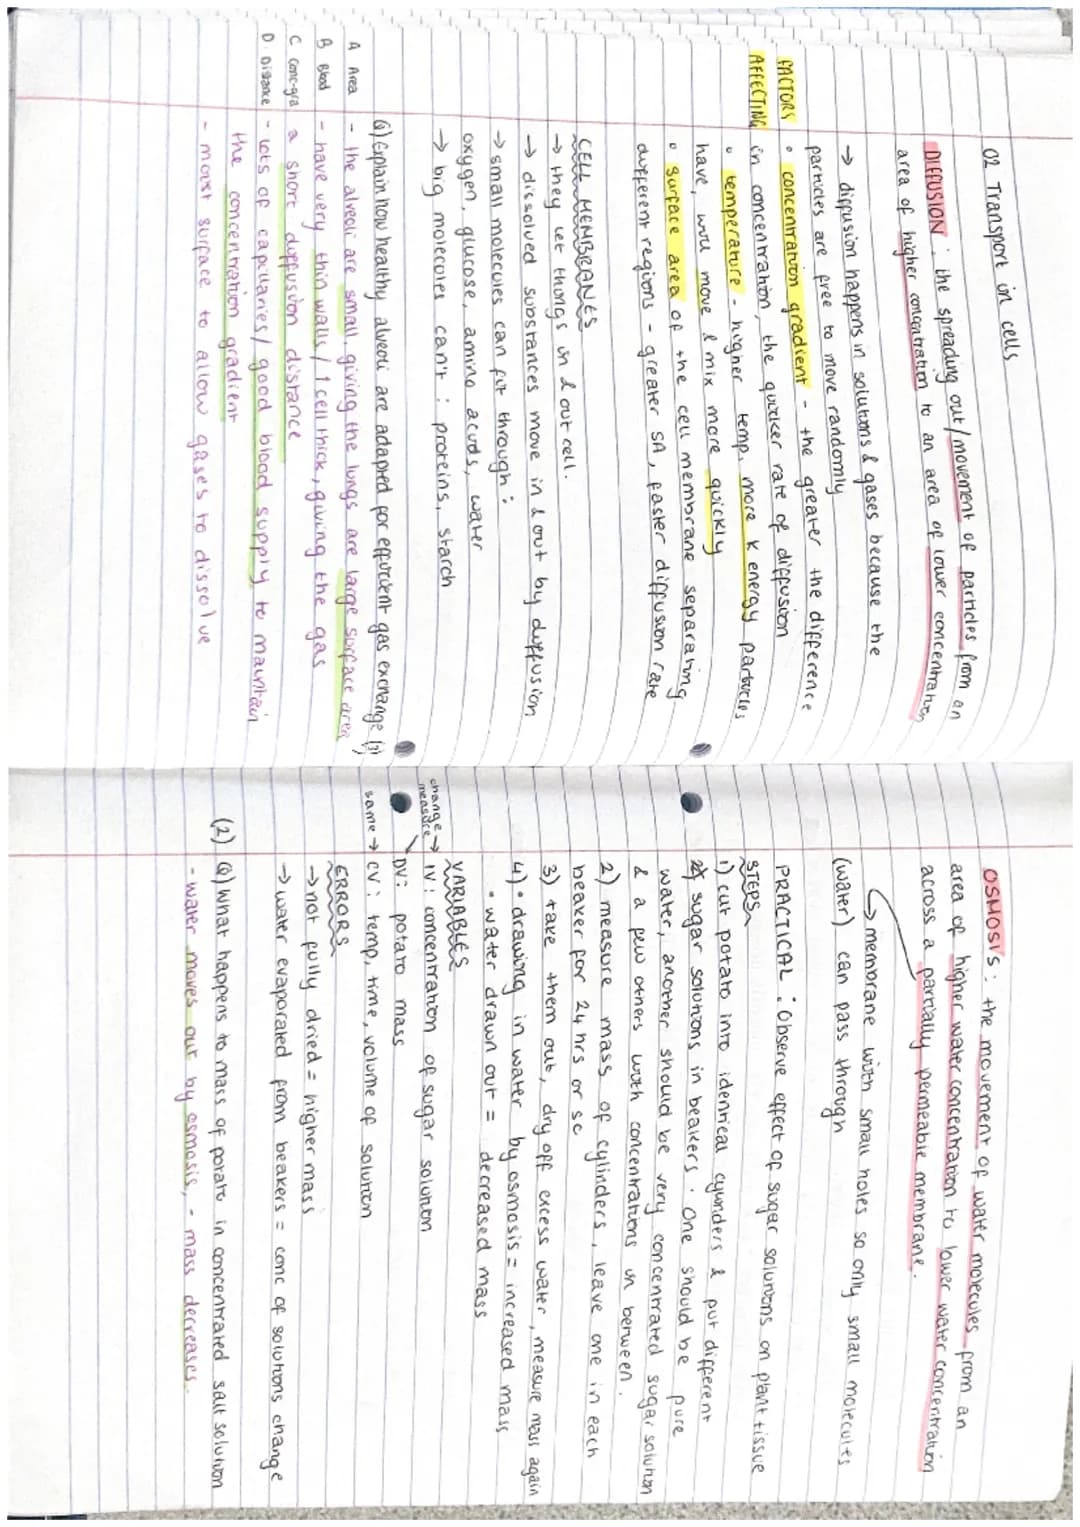 02 Transport in cells
DIFFUSION : the spreading out/movement of particles from an
area of higher concentration to an area of lower concentration
→ diffusion happens in solutions & gases because the
particles are free to move randomly
FACTORS AFFECTING
• concentration gradient - the greater the difference
in concentration, the quicker rate of diffusion
• temperature - higher temp. more k energy particles
have, will move & mix more quickly
• surface area of the cell membrane separating
different regions - greater SA, faster diffusion rate
CELL MEMBRANES
→ they let things in & out cell.
→ dissolved substances move in & out by diffusion
→ small molecules can fit through :
oxygen, glucose, amino acids, water
→ big molecules can't : proteins, starch
Q) Explain how healthy alveoli are adapted for efficient gas exchange (3)
A Area - the alveoli are small, giving the lungs are large surface area
B Blood - have very thin walls / 1 cell thick, giving the gas
C Conc-gra a short diffusion distance
D. Distance - lots of capillaries / good blood supply to maintain
the concentration gradient
- moist surface to allow gases to dissolve
OSMOSIS : the movement of water molecules from an
area of higher water concentration to lower water concentration
across a partially permeable membrane.
↳ membrane with small holes so only small molecules
(water) can pass through
PRACTICAL : Observe effect of sugar solutions on plant tissue
STEPS
1) cut potato into identical cylinders & put different
2) sugar solutions in beakers. One should be pure
water, another should be very concentrated sugar solution
& a few others with concentrations in between.
2) measure mass of cylinders, leave one in each
beaker for 24 hrs or so
3) take them out, dry off excess water, measure mass again
4) • drawing in water by osmosis = increased mass
• water drawn out = decreased mass
VARIABLES
change → IV : concentration of sugar solution
measure ↘ DV : potato mass
same → CV : temp, time, volume of solution
ERRORS
→ not fully dried = higher mass
→ water evaporated from beakers = conc of solutions change
(2) Q) What happens to mass of potato in concentrated salt solution
- water moves out by osmosis, - mass decreases.